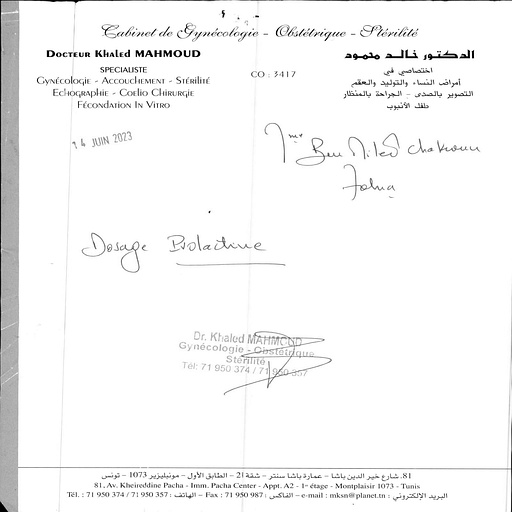 Cabinet de Gynécologie - Obstétrique - Stérilité
Docteur Khaled MAHMOUD
SPECIALISTE
Gynécologie - Accouchement - Stérilité
Echographie - Coelio Chirurgie
Fécondation In Vitro
CO : 3417
الدكتور خالد محمود
اختصاصي في
أمراض النساء والتوليد والعقم
التصوير بالصدى - الجراحة بالمنظار
طفل الأنبوب
14 JUIN 2023
Mme Ben Miled
Dosage Prolactine
Dr. Khaled MAHMOUD
Gynécologie - Obstétrique
Stérilité
Tél: 71 950 374 / 71 950 357
81. شارع خير الدين باشا - عمارة باشا سنتر - شقة 2أ - الطابق الأول - مونبليزير 1073 - تونس
81, Av. Kheireddine Pacha - Imm. Pacha Center - Appt. A2 - 1er étage - Montplaisir 1073 - Tunis
Tél. : 71 950 374 / 71 950 357 : الهاتف - Fax : 71 950 987 : الفاكس - e-mail : mksn@planet.tn : البريد الإلكتروني